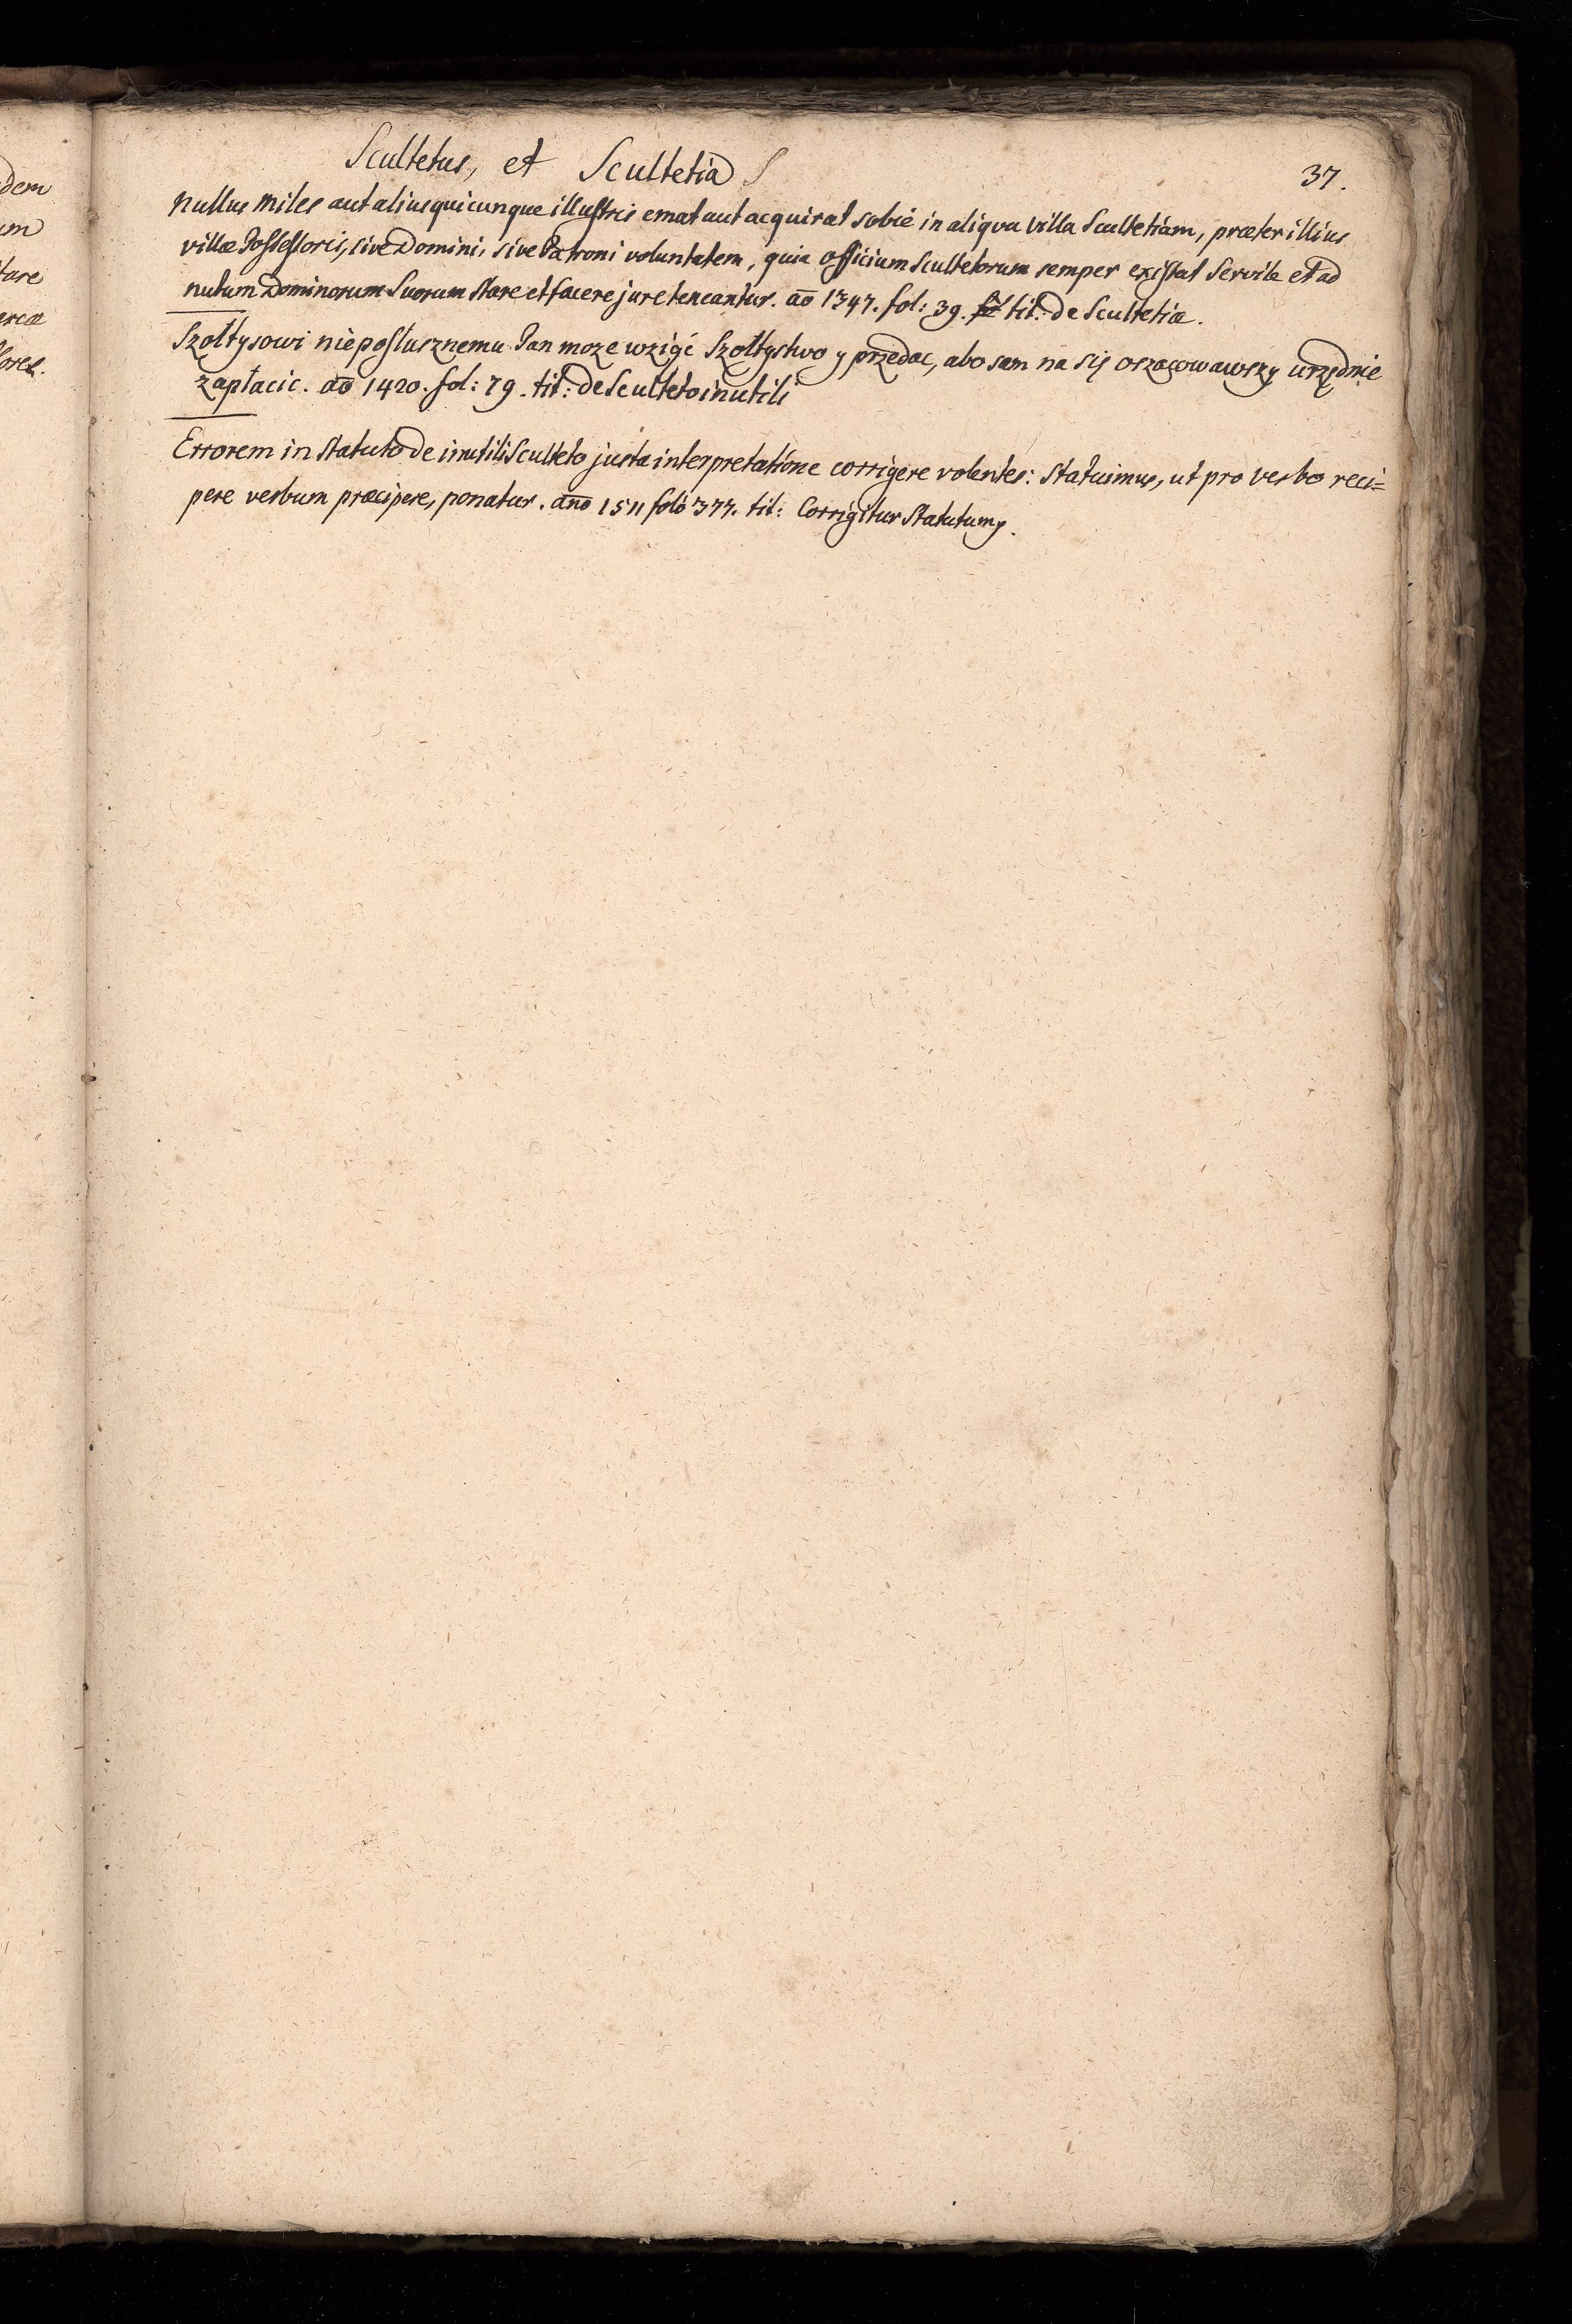 Scultetus, et Scultetia S
37.
Nullus Miles aut aliusquicunque illustris emat aut acquirat sobie in aliqva villa Scultetiam, præter illius
villæ Possessoris, sive Domini, sive Patroni voluntatem, quia officium Scultetorum semper existat Servile et ad
nutum Dominorum Suorum Stare et facere jure teneantur. ao 1347. fol: 39. tit: de Scultetiæ.
Szołtysowi nieposłusznemu Pan moze wziąć Szołtystwo y przedac, abo sam na się oszacowawszy urzędnie
zapłacic. ao 1420. fol: 79. tit: de Sculteto inutili
Errorem in Statuto de inutili Sculteto justa interpretatione corrigere volentes: Statuimus, ut pro verbo reci=
pere verbum præcipere, ponatur. ano 1511 folo 377. tit: Corrigitur Statutum.
dem
um
tare
ercæ
ores.